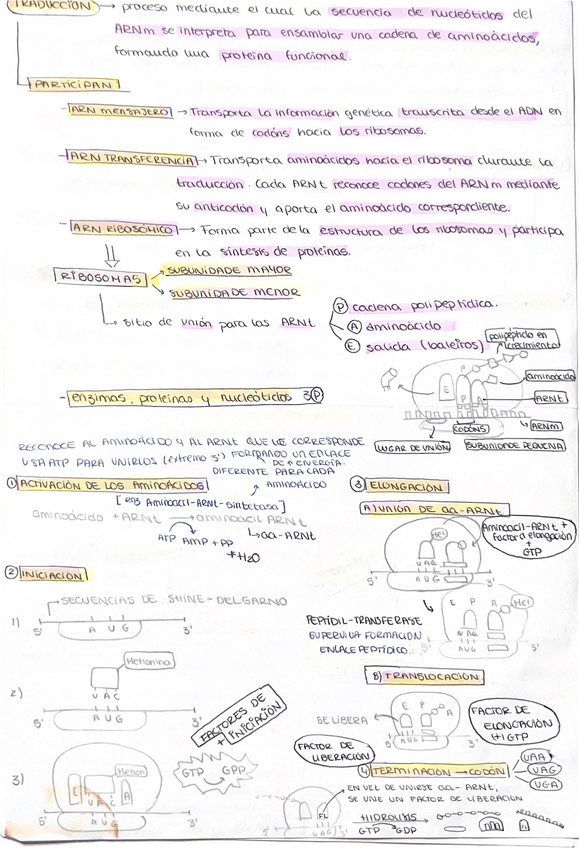 TRADUCCION → proceso mediante el cual la secuencia de nucleótidos del
ARNm se interpreta para ensamblar una cadena de aminoácidos,
formando una proteína funcional.
PARTICIPAN
- ARN MENSAJERO → Transporta la información genética transcrita desde el ADN en
forma de codóns hacia los ribosomas.
- ARN TRANSFERENCIA → Transporta aminoácidos hacia el ribosoma durante la
traducción. Cada ARNt reconoce codones del ARNm mediante
su anticodón y aporta el aminoácido correspondiente.
- ARN RIBOSÓMICO → Forma parte de la estructura de los ribosomas y participa
en la síntesis de proteínas.
RIBOSOMAS
SUBUNIDAD MAYOR
SUBUNIDAD MENOR
sitio de unión para las ARNt
P cadena polipeptídica.
A aminoácido
E salida (baleiros)
polipéptido en
crecimiento
aminoácido
ARNt
ARNm
E P A
CODÓNS
LUGAR DE UNIÓN
SUBUNIDADE PEQUENA
- enzimas, proteínas y nucleótidos 3P
RECONOCE AL AMINOÁCIDO Y AL ARNt QUE LLE CORRESPONDE
USA ATP PARA UNIRLOS (extremo 3') FORMANDO UN ENLACE
DE ↑ ENERGÍA.
DIFERENTE PARA CADA
AMINOÁCIDO
① ACTIVACIÓN DE LOS AMINOÁCIDOS
[enz Aminoacil-ARNt-sintetasa]
aminoácido + ARNt → aminoacil ARNt
ATP AMP + PP
↳ aa-ARNt
+ H2O
② INICIACIÓN
SECUENCIAS DE SHINE-DELGARNO
1)
5' A U G 3'
Metionina
U A C
2)
5' A U G 3'
FACTORES DE
+ INICIACIÓN
GTP GPP
3)
Metion
E U A C A
5' A U G 3'
③ ELONGACIÓN
A) UNIÓN DE aa-ARNt
Met
U A C
5' A U G 3'
Aminoacil-ARNt +
Factor elongación
+
GTP
PEPTIDIL-TRANSFERASE
SUPERVISA FORMACIÓN
ENLACE PEPTÍDICO.
E P A Met
A U G
5' 3'
B) TRANSLOCACIÓN
SE LIBERA
E P A
A U G
5' 3'
FACTOR DE
ELONGACIÓN
(+) GTP
FACTOR DE
LIBERACIÓN
4) TERMINACIÓN → CODÓN
UAA
UAG
UGA
EN VEZ DE UNIRSE aa-ARNt,
SE UNE UN FACTOR DE LIBERACIÓN
FL
UAG
5' 3'
HIDRÓLISIS
GTP GDP